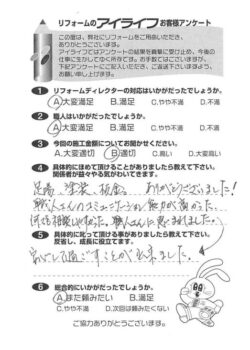 リフォームのアイライフお客様アンケート
この度は、弊社にリフォームをご用命いただき、
ありがとうございます。
アイライフではアンケートの結果を真摯に受け止め、今後の
仕事に生かしてゆく所存です。お手数ではございますが、
下記アンケートにご記入いただき、ご返送下さいますよう、
お願い申し上げます。
1 リフォームディレクターの対応はいかがだったでしょうか。
A.大変満足 B.満足 C.やや不満 D.不満
2 職人はいかがだったでしょうか。
A.大変満足 B.満足 C.やや不満 D.不満
3 今回の施工金額についてお聞かせください。
A.大変適切 B.適切 C.高い D.大変高い
4 具体的にほめて頂けることがありましたら教えて下さい。
関係者が益々やる気がわいてきます。
足場、塗装、板金、ありがとうございました!
職人さんのコミュニケーション能力が高かった
職人さんに恵まれました。
5 具体的に叱って頂ける事がありましたら教えて下さい。
反省し、成長に役立てます。
安心して過ごすことが出来ました。
6 総合的にいかがだったでしょうか。
A.また頼みたい B.満足
C.やや不満 D.次回は頼みたくない
ご協力ありがとうございます。